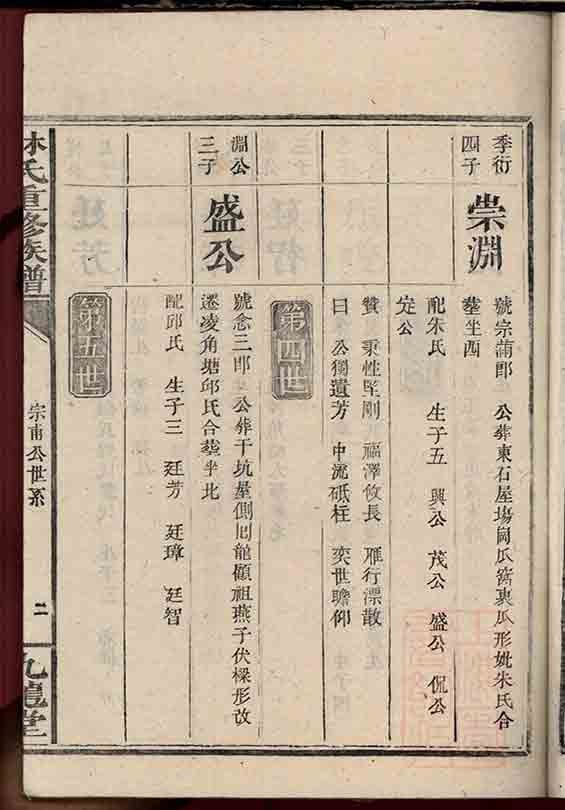 季衍
四子
崇淵
號宗蒲郎 公葬東石屋場岡瓜窩裏瓜形妣朱氏合
塟坐酉
配朱氏 生子五 興公 茂公 盛公 侃公
定公
贊 秉性堅剛 福澤攸長 雁行漂散
曰 公獨遺芳 中流砥柱 奕世瞻仰
第四世
淵公
三子
盛公
號念三郎 公葬干坑屋側回龍顧祖燕子伏樑形改
遷凌角塘邱氏合塟半北
配邱氏 生子三 廷芳 廷璋 廷智
第五世
林氏重修族譜
宗甫公世系
二
九龍堂